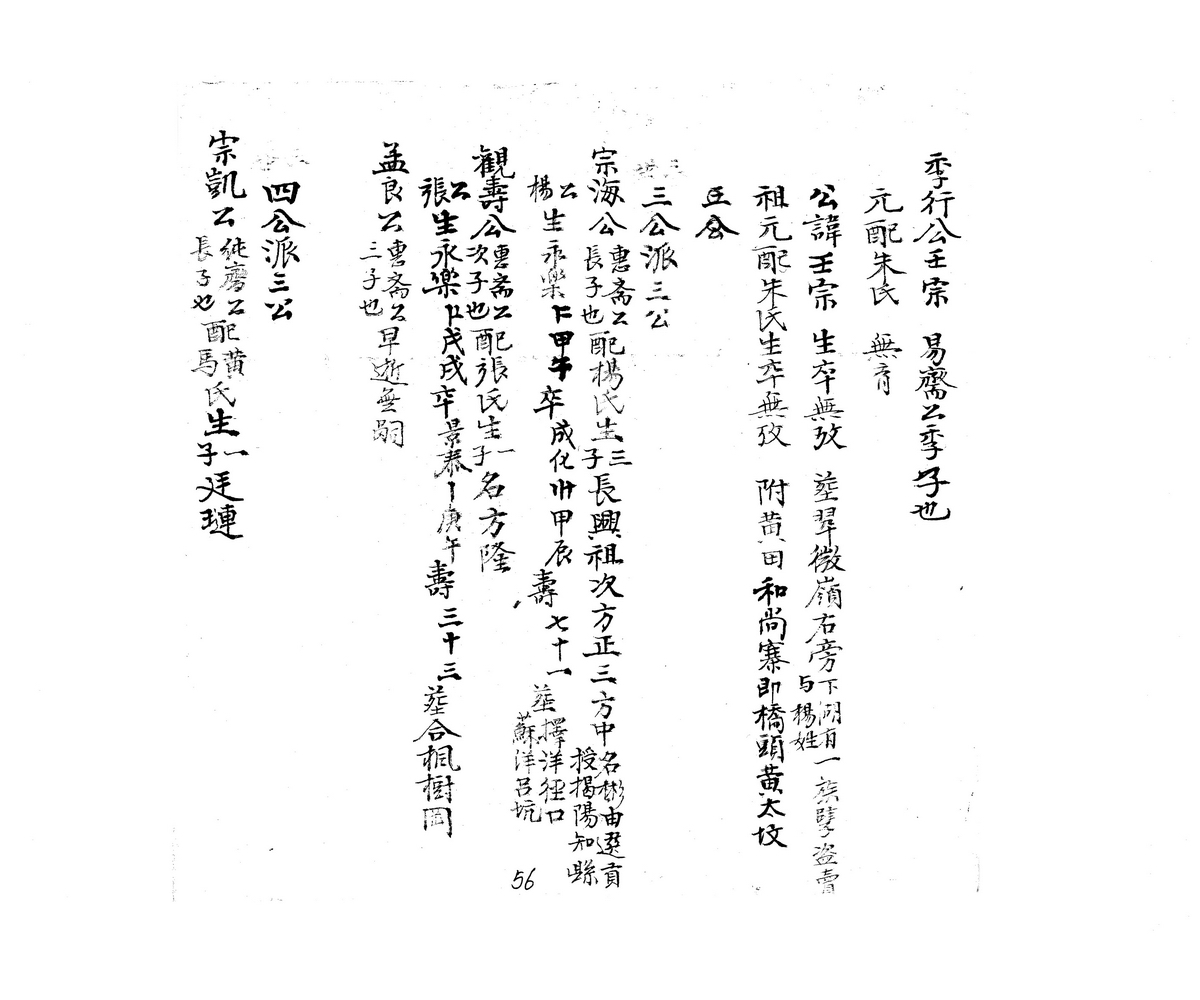 季行公壬宗 易齋公季子也
元配朱氏 無育
公諱壬宗 生卒無攷 塟翠微嶺右旁下 有一 孽盗賣与楊姓
祖元配朱氏生卒無攷 附黄田和尚寨即橋頭黄太坟
公
三公派三公
宗海公惠斋公長子也配楊氏生三子長興祖次方正三方中名彬由選貢授揭陽知縣
公楊生永樂〨甲午卒成化〣〸甲辰壽七十一塟擇洋徑口蘇洋呂坑
觀壽公惠斋公次子也配張氏生一子名方隆
公張生永樂 戊戌卒景泰〡庚午壽三十三塟合楓樹岡
孟良公惠斋公三子也早逝無嗣
四公派三公
宗凱公純齋公長子也配黄馬氏生一子廷璉
56